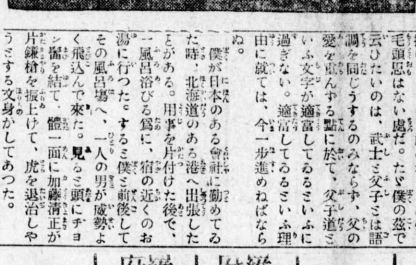 毛頭思はない處だ。たゞ僕の茲で
云ひたいのは、武士と父子とは語
調を同じうするのみならず、父の
愛を重んずる點に於て、父子道と
いふ文字が適當してゐるといふに
過ぎない。適當してゐるといふ理
由に就ては、今一步進めねばなら
ぬ。
僕が日本のある會社に勤めてゐ
た時、北海道のある港へ出張した
ことがある。用事を片付けた後で、
一風呂浴びる爲に、宿の近くのお
湯に行つた。すると僕と前後して
その風呂場へ、一人の男が威勢よ
く飛込んで來た。見ると頭にチヨ
ン髷を結て、體一面に加藤淸正が
片鎌槍を提げて、虎を退治しや
うとする文身がしてあつた。